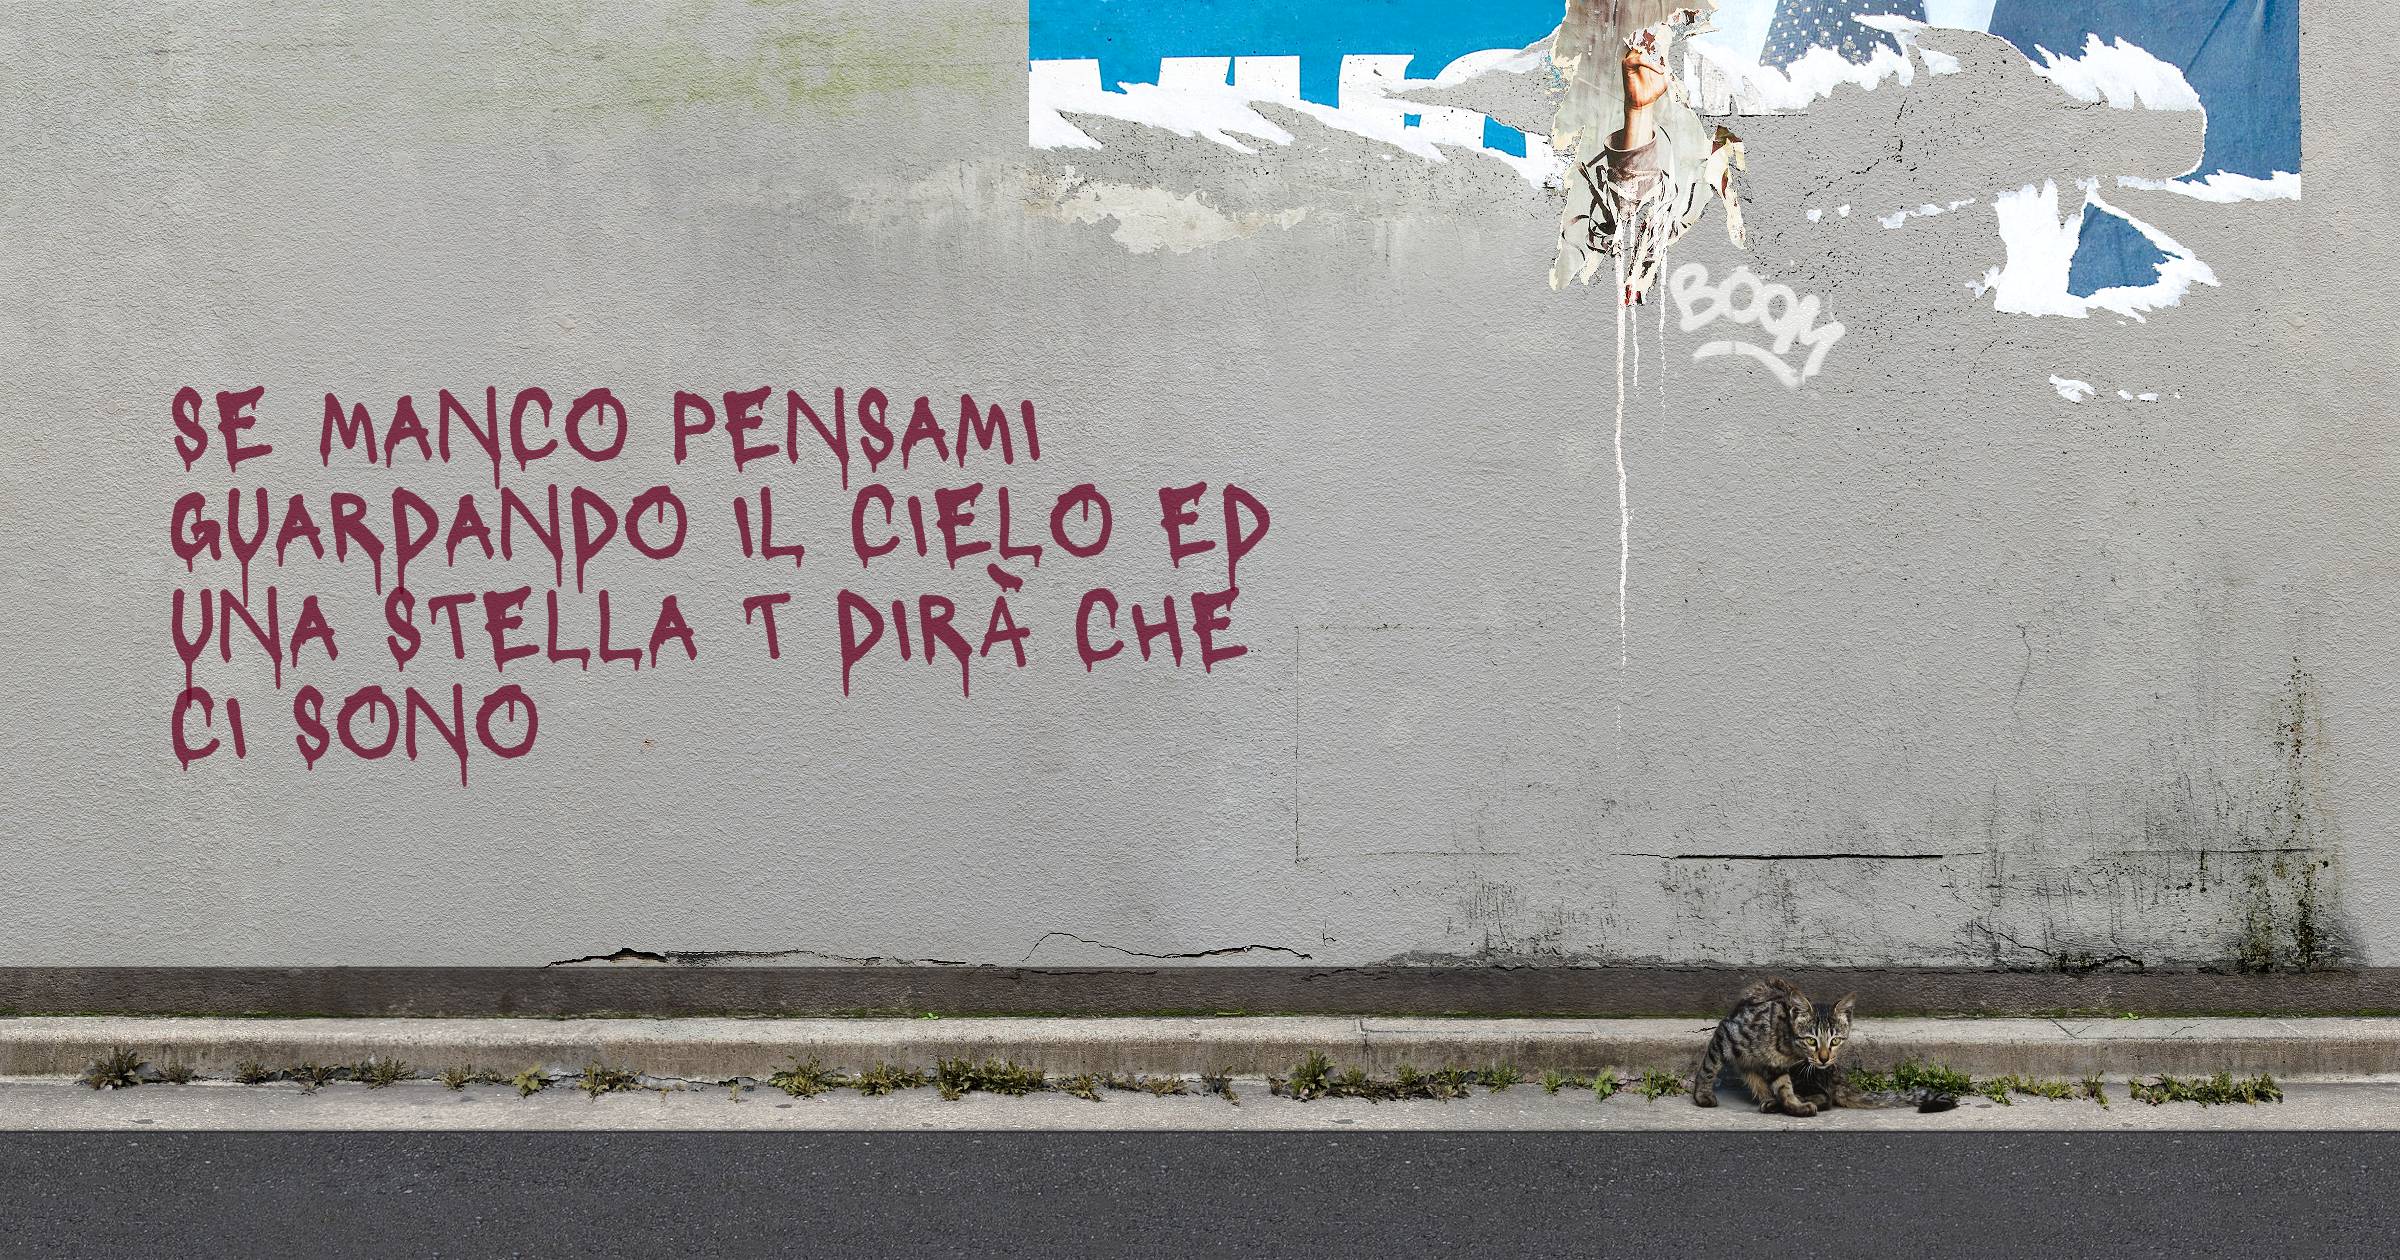 BOOM
SE MANCO PENSAMI
GUARDANDO IL CIELO ED
UNA STELLA T DIRÀ CHE
CI SONO